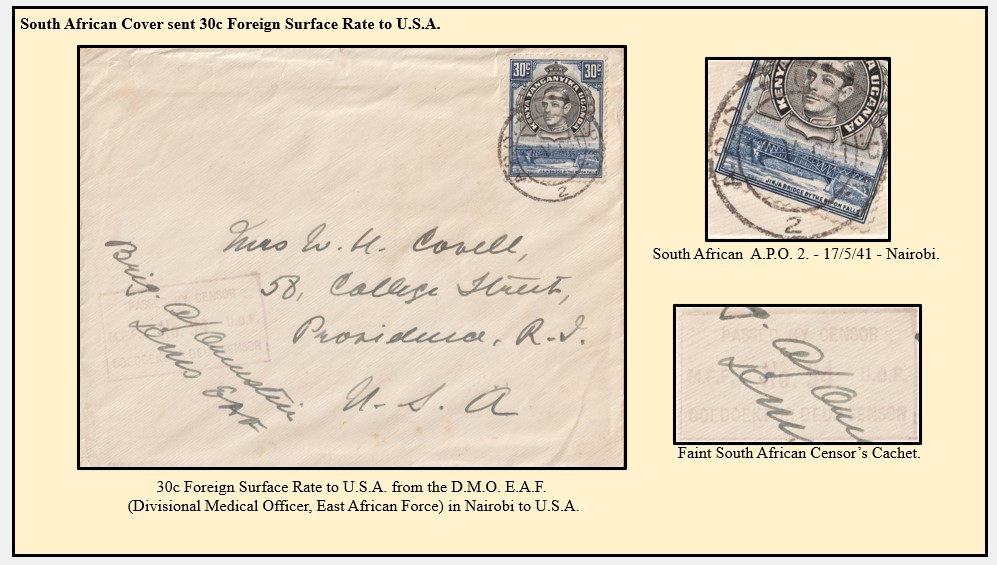 South African Cover sent 30c Foreign Surface Rate to U.S.A.
30c 30c
KENYA TANGANYIKA UGANDA
JINJA BRIDGE BY THE RIPON FALLS
2
Mrs W. H. Covell,
58, College Street,
Providence, R.I.
U. S. A
Brig. 
EAF
PASSED BY CENSOR
U.D.F.
KENYA UGANDA
JINJA BRIDGE BY THE RIPON FALLS
2
South African A.P.O. 2. - 17/5/41 - Nairobi.
PASSED BY CENSOR
No.
U.D.F.
Faint South African Censor's Cachet.
30c Foreign Surface Rate to U.S.A. from the D.M.O. E.A.F.
(Divisional Medical Officer, East African Force) in Nairobi to U.S.A.